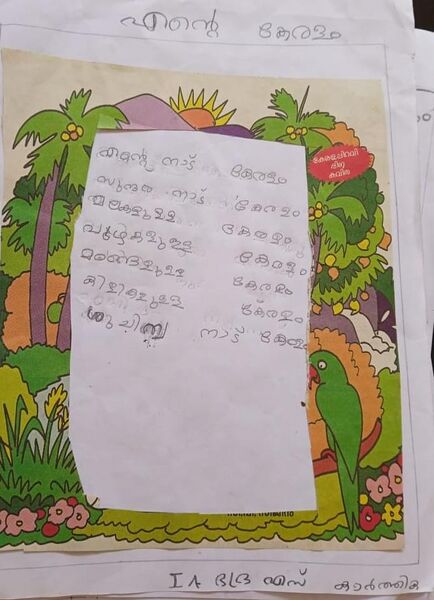 എന്റെ കേരളം
കേരളപിറവി
ദിന
കവിത
എന്റെ നാട് കേരളം
സുന്ദര നാട് കേരളം
മലകളുള്ള കേരളം
പുഴകളുള്ള കേരളം
മരങ്ങളുള്ള കേരളം
കിളികളുള്ള കേരളം
ശുചിത്വ നാട് കേരളം
I A ഭദ്ര എസ് കാർത്തിക